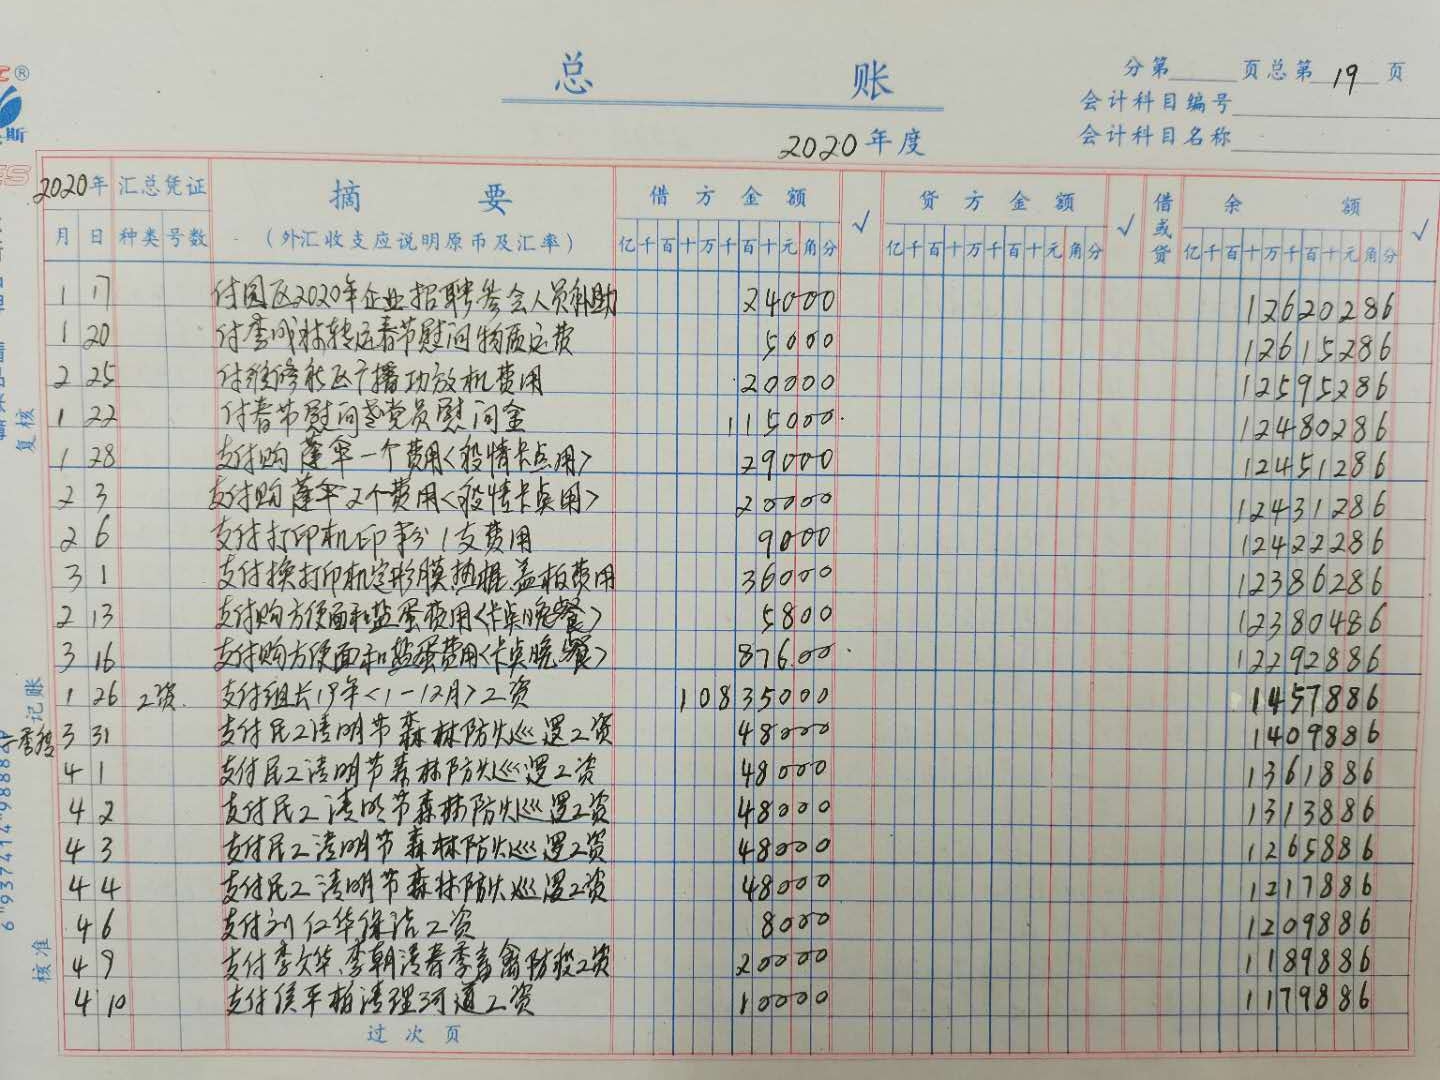 总 账
分第 页总第 19 页
会计科目编号
会计科目名称
2020 年度
2020年 汇总凭证 摘 要 借 方 金 额 √ 贷 方 金 额 √ 借或贷 余 额 √
月 日 种类 号数 (外汇收支应说明原币及汇率) 亿千百十万千百十元角分 亿千百十万千百十元角分 亿千百十万千百十元角分
1 17 付园区2020年企业招聘参会人员补助 24000 12620286
1 20 付李成林转运春节慰问物质运费 5000 12615286
2 25 付社区广播功放机费用 20000 12595286
1 22 付春节慰问老党员慰问金 115000 12480286
1 28 支付购蓬伞一个费用<疫情卡点用> 29000 12451286
2 3 支付购蓬伞2个费用<疫情卡点用> 20000 12431286
2 6 支付打印机印粉1支费用 9000 12422286
3 1 支付换打印机定形膜热棍盖板费用 36000 12386286
2 13 支付购方便面和盐蛋费用<卡点晚餐> 5800 12380486
3 16 支付购方便面和盐蛋费用<卡点晚餐> 87600 12292886
1 26 工资 支付组长19年<1-12月>工资 10835000 1457886
3 31 支付民工清明节森林防火巡逻工资 48000 1409886
4 1 支付民工清明节森林防火巡逻工资 48000 1361886
4 2 支付民工清明节森林防火巡逻工资 48000 1313886
4 3 支付民工清明节森林防火巡逻工资 48000 1265886
4 4 支付民工清明节森林防火巡逻工资 48000 1217886
4 6 支付刘仁华保洁工资 8000 1209886
4 9 支付李文华、李朝清春季畜禽防疫工资 20000 1189886
4 10 支付侯平柏清理河道工资 10000 1179886
过 次 页
复核
记账
核准